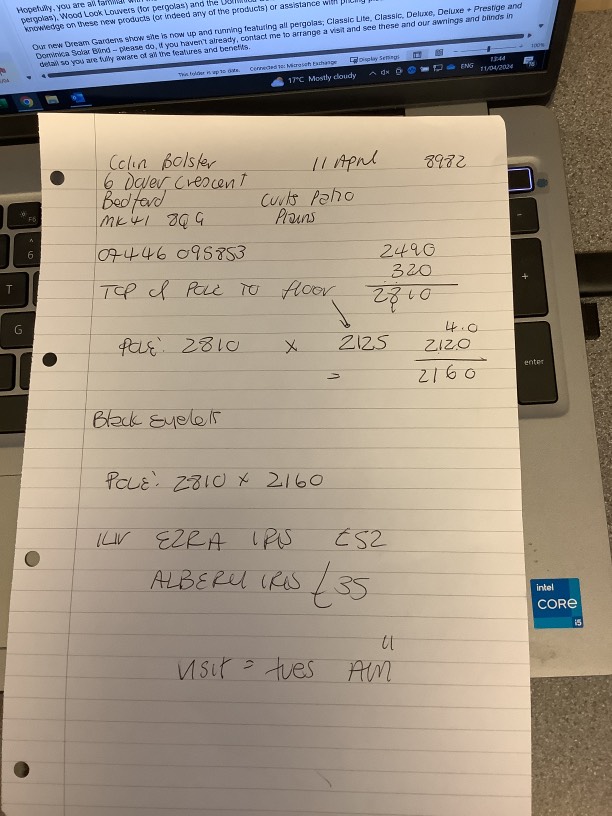 Hopefully, you are all familiar with
pergolas), Wood Lock Louvers (for pergolas) and the
knowledge on these new products (or indeed any of the products) or assistance with pricing
Our new Dream Gardens show site is now up and running featuring all pergolas; Classic Lite, Classic, Deluxe, Deluxe + Prestige and
Dominica Solar Blind – please do, if you haven't already, contact me to arrange a visit and see these and our awnings and blinds in
detail so you are fully aware of all the features and benefits.
This folder is up to date. Connected to: Microsoft Exchange Display Settings 100%
17°C Mostly cloudy ENG 13:44
11/04/2024
Colin Bolster 11 April 8982
6 Dover Crescent
Bedford Curts Patio
MK41 8QG
07446 095853 2490
320
Top of Pole TO floor 2810
4.0
Pole: 2810 x 2125 2120
= 2160
Black Eyelets
Pole: 2810 x 2160
EZRA IRIS £52
IRIS £35
visit = tues AM
F6
6
T
G
+
enter
intel
CORE
i5